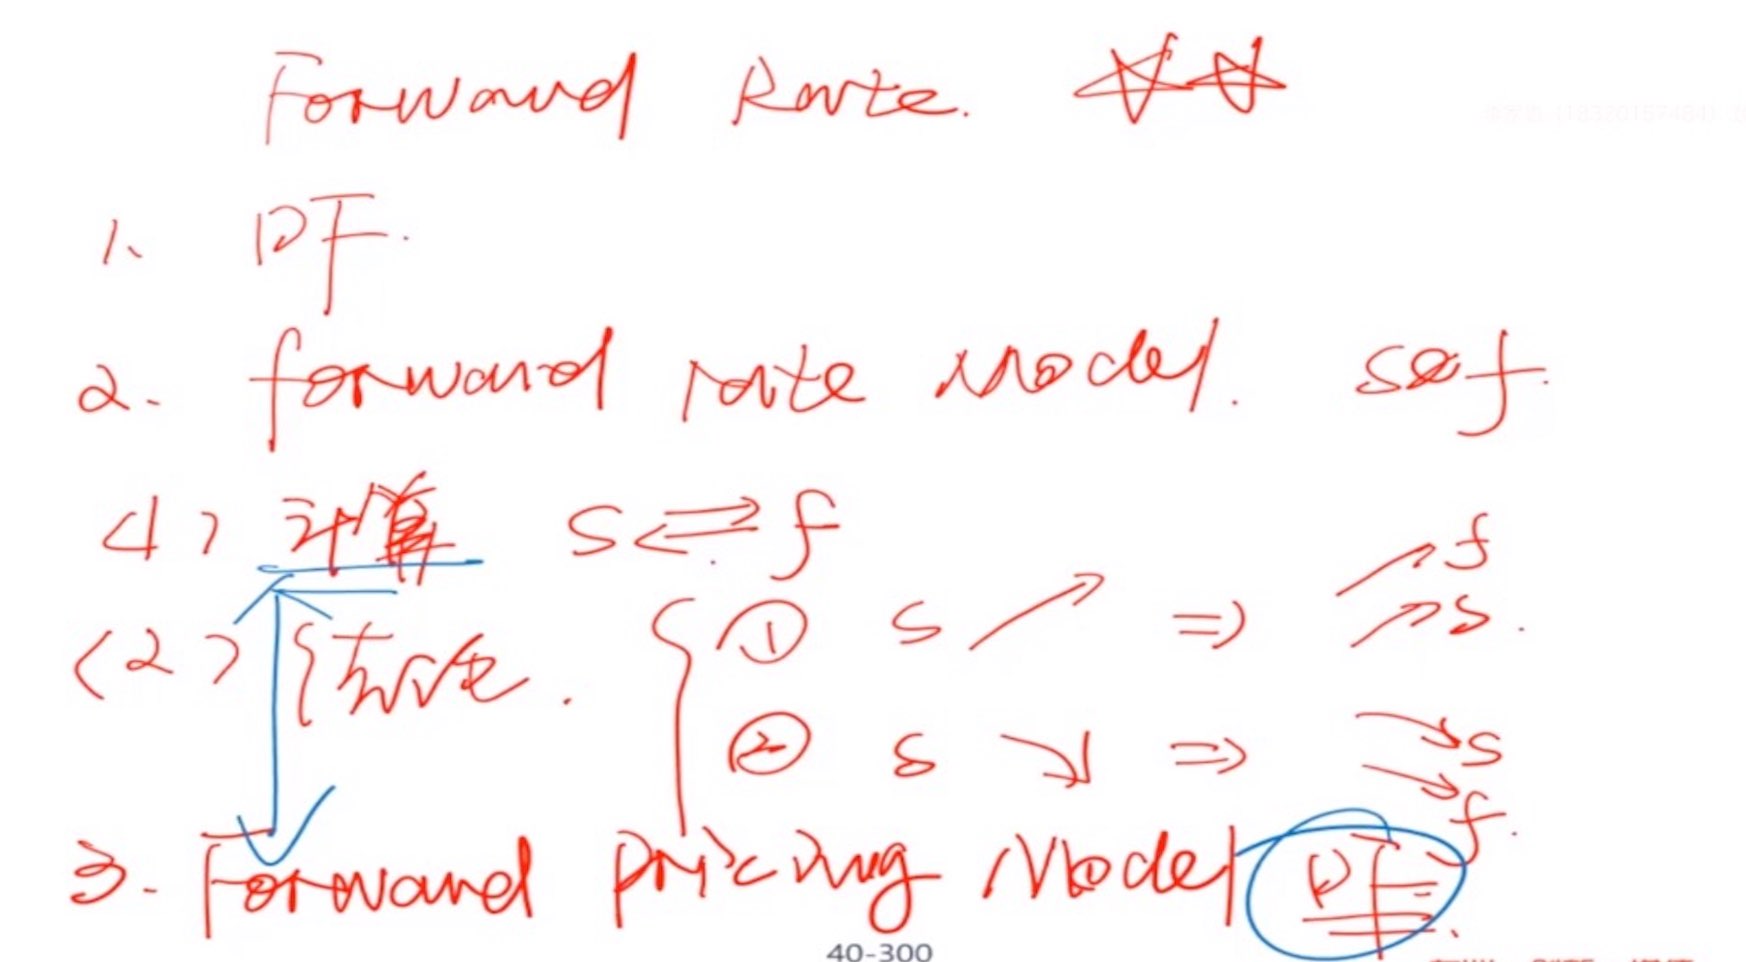 Forward Rate. ☆☆
1、 DF.
2. forward rate Model. s&f.
(1) 计算 S ⇄ f
(2) ① S ↗ ⇒ ↗ f ↗ S.
② S ↘ ⇒ ↘ S ↘ f.
3. Forward pricing Model DF.
40-300